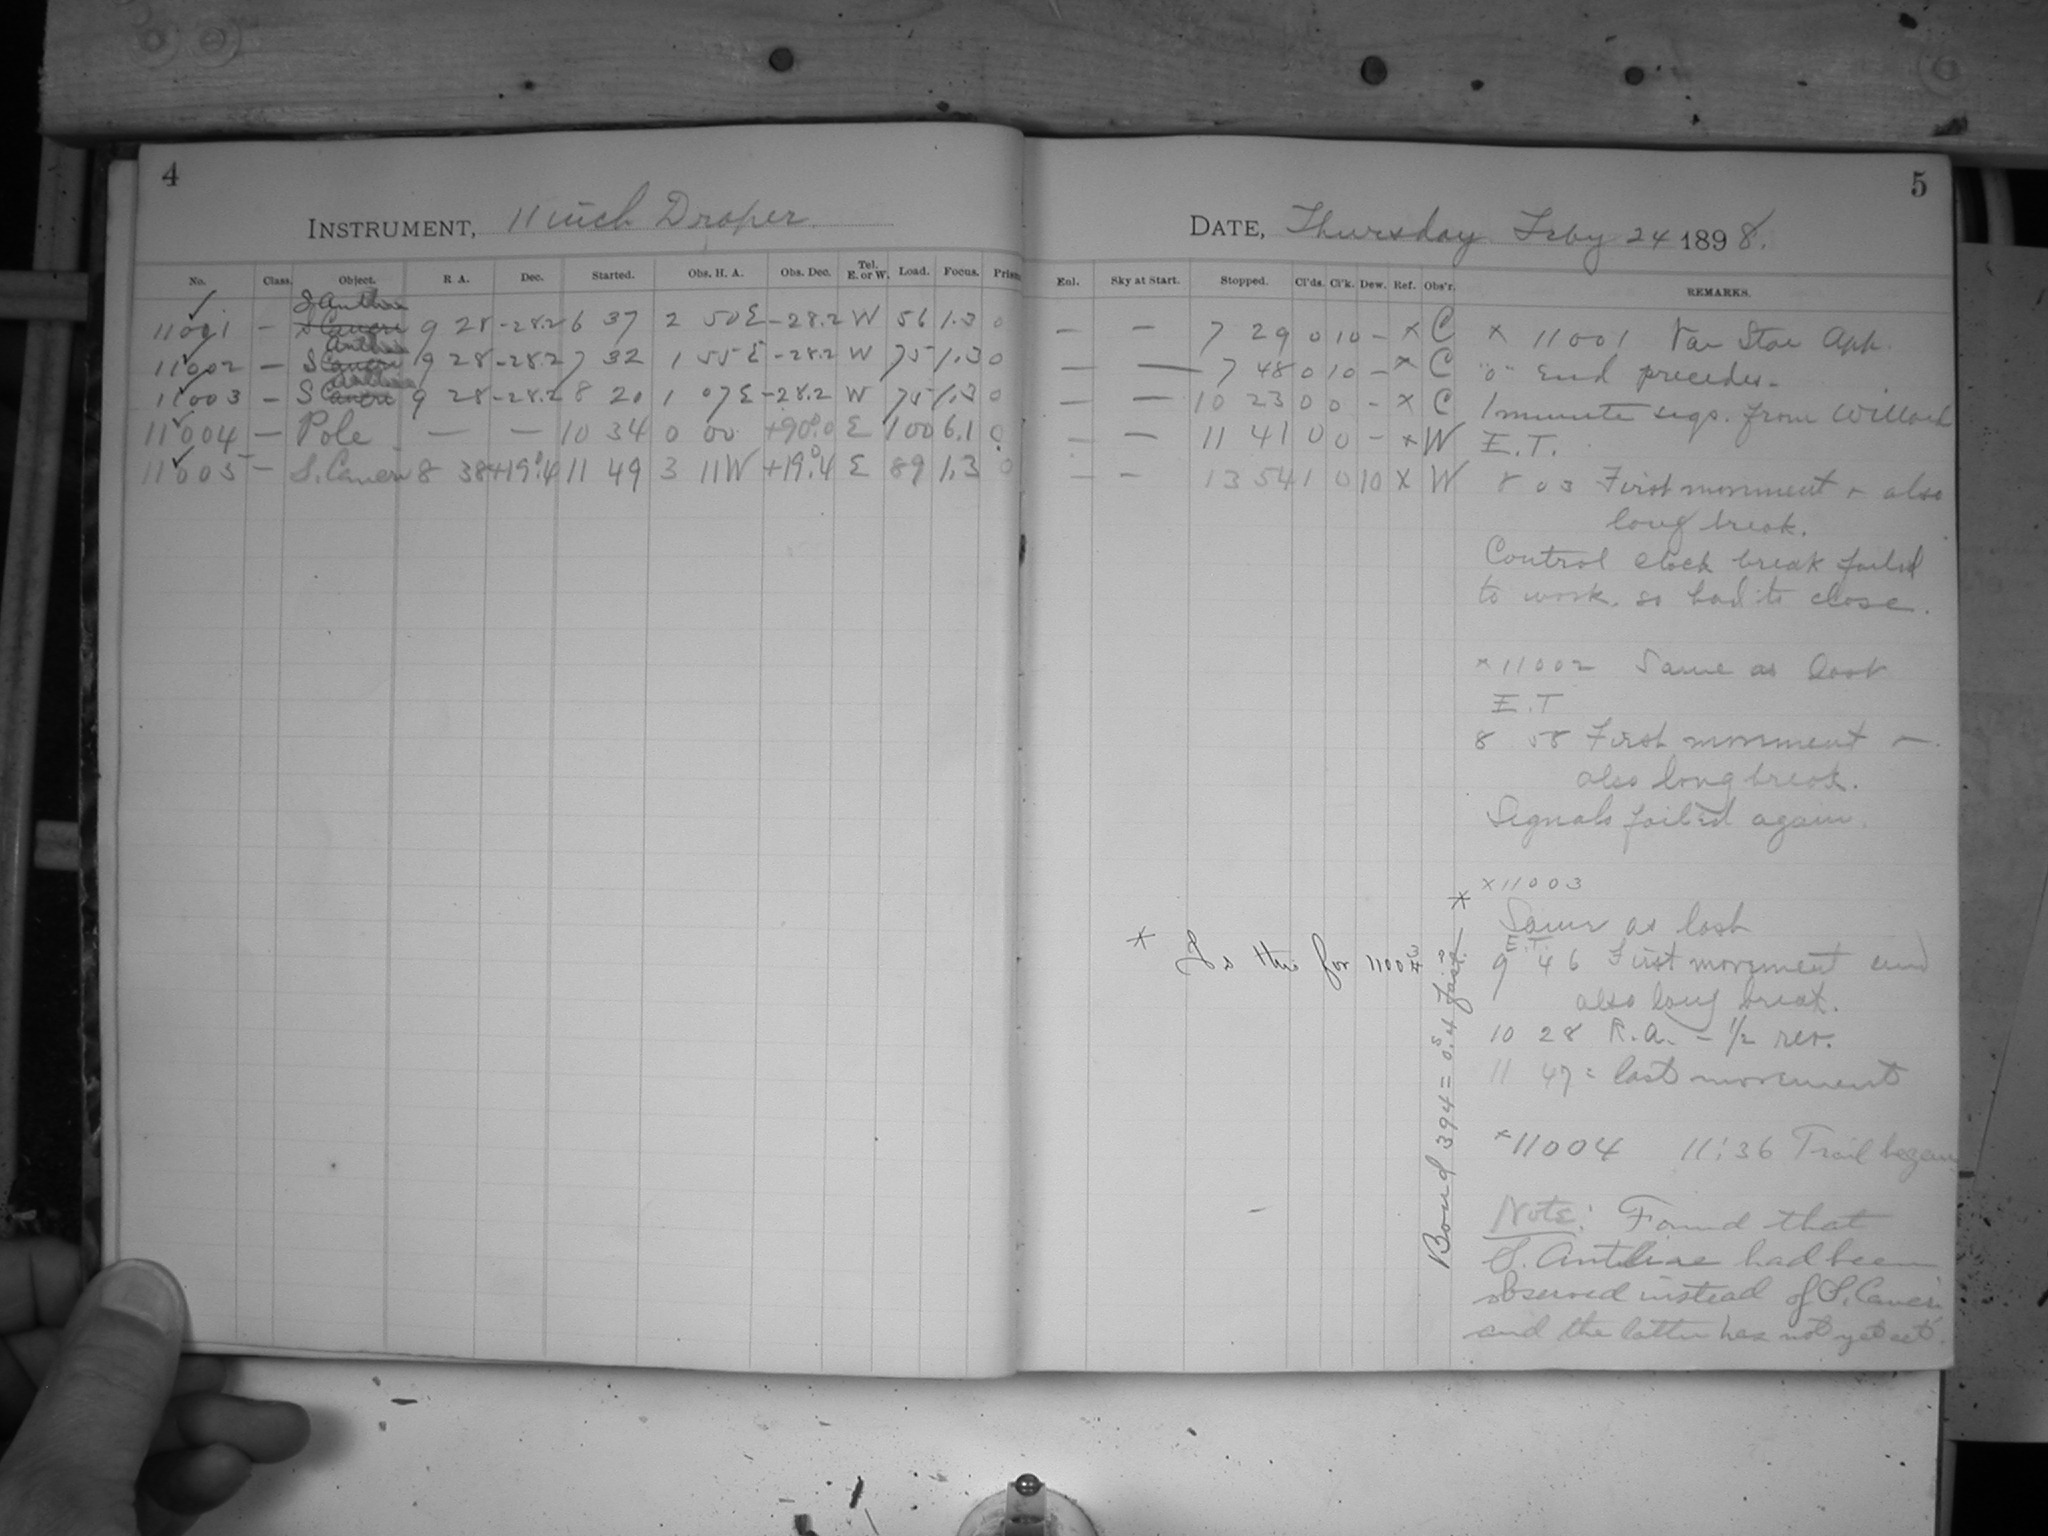 4
INSTRUMENT, 11 inch Draper
No. Class. Object. R. A. Dec. Started. Obs. H. A. Obs. Dec. Tel. E. or W. Load. Focus. Prism
S Antliae
11001 — S Cancri 9 28 -28.2 6 37 2 50 E -28.2 W 56 1.3 0
Antliae
11002 — S Cancri 9 28 -28.2 7 32 1 55 E -28.2 W 75 1.3 0
Antliae
11003 — S Cancri 9 28 -28.2 8 20 1 07 E -28.2 W 75 1.3 0
11004 — Pole — — 10 34 0 00 +90°.0 E 100 6.1 0
11005 — S. Cancri 8 38 +19°.4 11 49 3 11 W +19°.4 E 89 1.3 0
5
DATE, Thursday Feby 24 1898.
Enl. Sky at Start. Stopped. Cl'ds. Cl'k. Dew. Ref. Obs'r. REMARKS.
— — 7 29 0 10 — x C
— — 7 48 0 10 — x C
— — 10 23 0 0 — x C
— — 11 41 0 0 — x W
— — 13 54 1 0 10 x W
x 11001 Var Star App.
"0" End precedes.
1 minute sigs. from Willard
E.T.
8 03 First movement + also
long break.
Control clock break failed
to work, so had to close.
x 11002 Same as last
E.T
8 58 First movement
also long break.
Signals failed again.
x 11003
Same as last
E.T.
9 46 First movement and
also long break.
10 28 R.A. — ½ rev.
11 47 = last movement
x 11004 11:36 Trail began
Note: Found that
S. Antliae had been
observed instead of S. Cancri
and the latter has not yet set.
* Is this for 11003
Bond 394 = 0.ˢ4 fast *